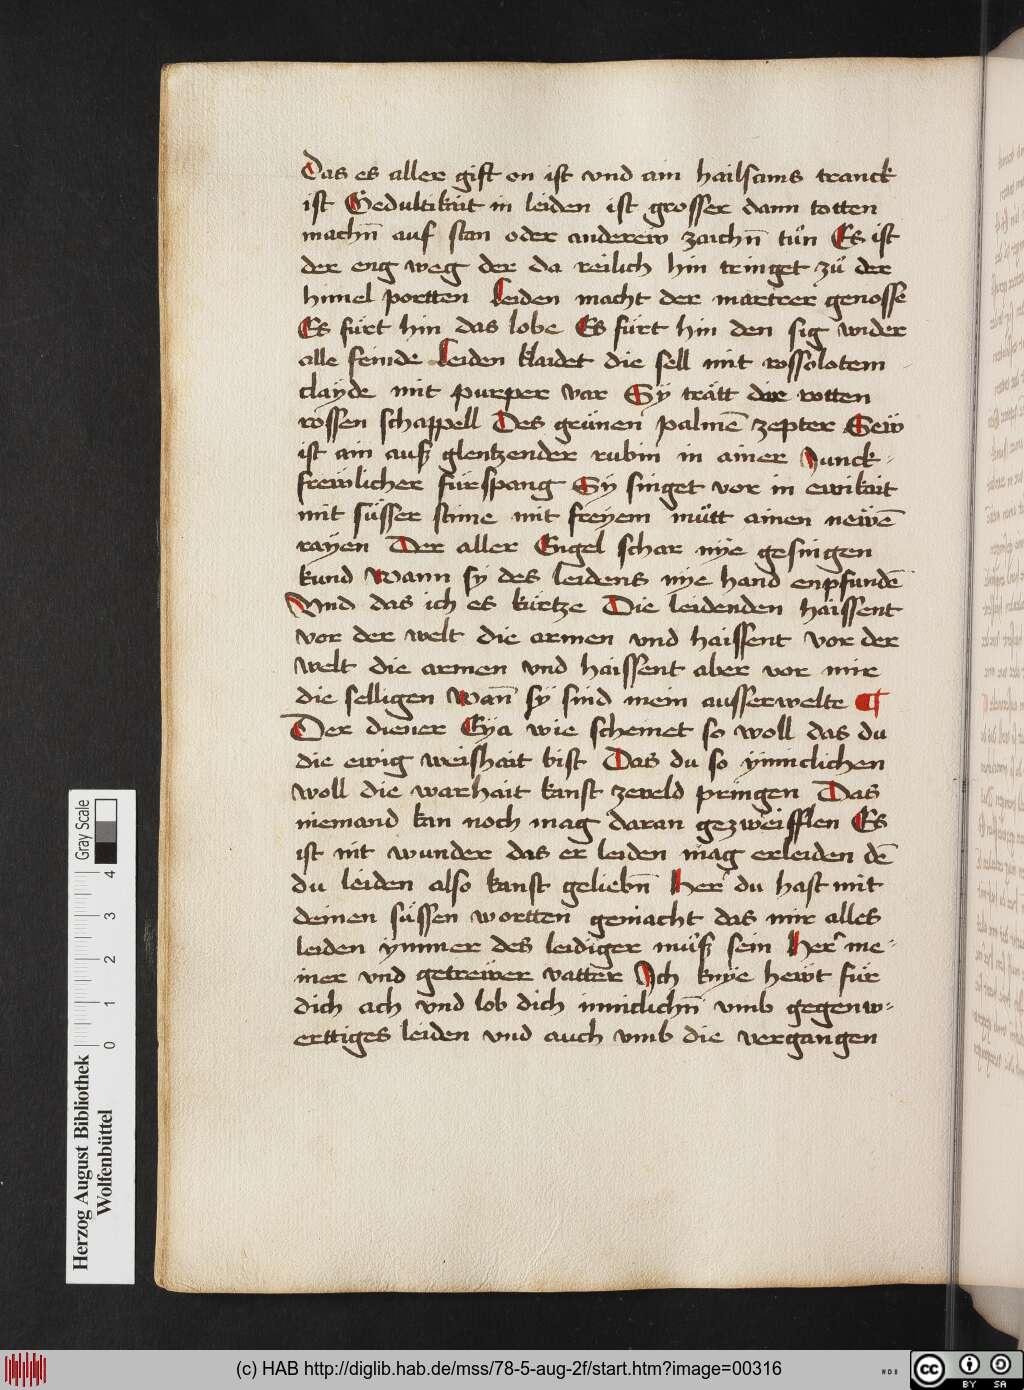 Das es aller gift on ist vnd ain hailsams tranck
ist Gedultikait in leiden ist grosser dann totten
machn̄ auf stan oder anderew zaichn̄ tůn Es ist
der eng weg der da reilich hin tringet zů der
himel portten Leiden macht der martrer genosse
Es fürt hin das lobe Es fürt hin den sig wider
alle feinde Leiden klaidet die sell mit rossolotem
clayde mit purper var Sÿ trätt der rotten
rossen schappell Des grünen palmē zepter Sew
ist ain auß glentzender rubin in ainer Junck-
frewlicher fürspang Sÿ singet vor in ewikait
mit süsser stime mit freÿem mütt ainen newē
raÿen Der aller Engel schar nÿe gesingen
kund Wann sÿ des leidens nÿe hand enpfundē
Vnd das ich es kürtze Die leidenden haissent
vor der welt die armen vnd haissent vor der
welt die armen vnd haissent aber vor mir
die selligen Wañ sÿ sind mein ausserwelte ¶
Der diener Eÿa wie scheinet so woll das du
die ewig weishait bist Das du so ÿnniclichen
woll die warhait kanst zeveld pringen Das
niemand kan noch mag daran gezweifflen Es
ist nit wunder das er leiden mag erleiden dē
du leiden also kanst geliebn̄ Her du hast mit
deinen süssen wortten gemacht das mir alles
leiden ÿmmer des leidiger müß sein Her me-
iner vnd getrewer vatter Ich knÿe hewt für
dich ach vnd lob dich inniclichn̄ vmb gegenw-
erttiges leiden vnd auch vmb die vergangen
Herzog August Bibliothek
Wolfenbüttel
0 1 2 3 4
Gray Scale
(c) HAB http://diglib.hab.de/mss/78-5-aug-2f/start.htm?image=00316
WDB
cc BY SA